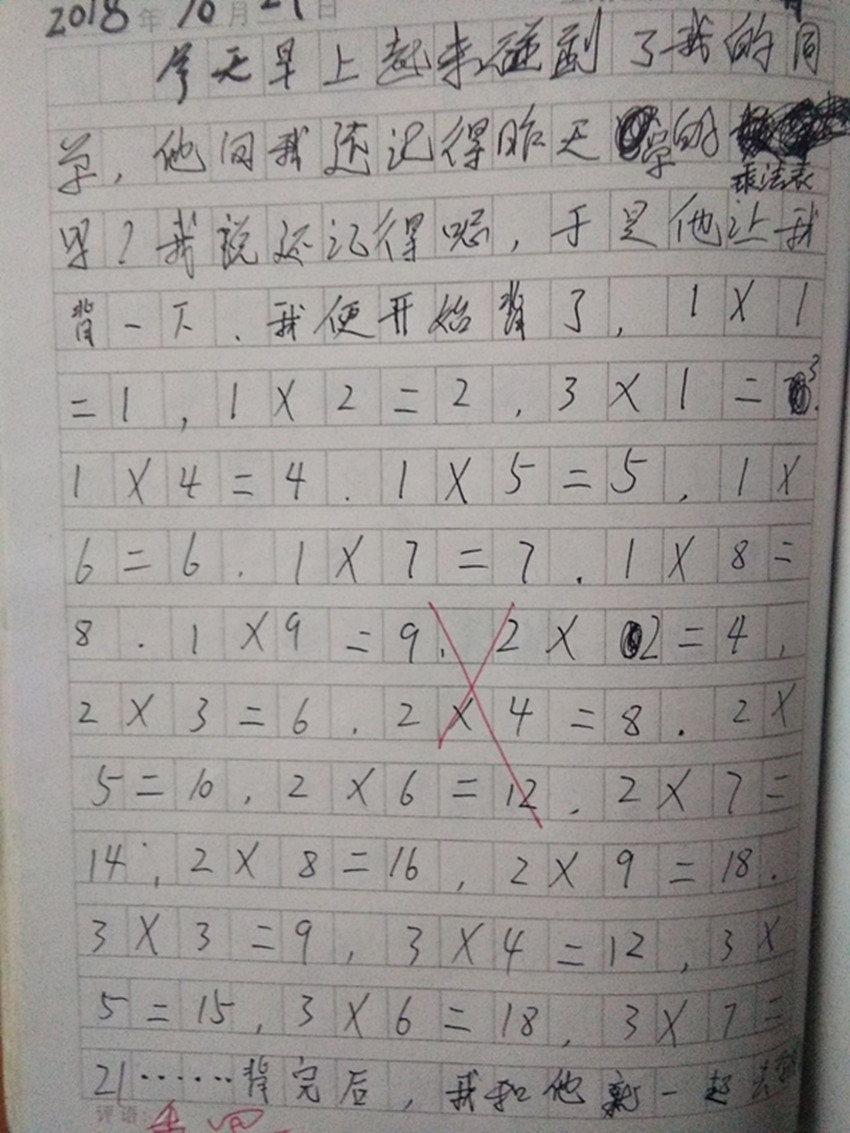 2018年10月29日
今天早上起来碰到了我的同
学，他问我还记得昨天学的
乘法表
吗？我说还记得呢，于是他让我
背一下．我便开始背了，1X1
=1,1X2=2.3X1=3.
1X4=4.1X5=5,1X
6=6.1X7=7.1X8=
8.1X9=9.2X2=4,
2X3=6.2X4=8.2X
5=10,2X6=12.2X7=
14,2X8=16,2X9=18.
3X3=9,3X4=12,3X
5=15,3X6=18,3X7=
21……背完后，我和他就一起去
评语:重写